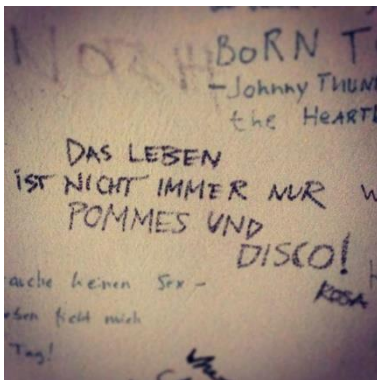 BORN T
- Johnny THUN
the HEART
DAS LEBEN
IST NICHT IMMER NUR W
POMMES UND
DISCO!
ROSA
auche keinen Sex -
eben fickt mich
Tag!